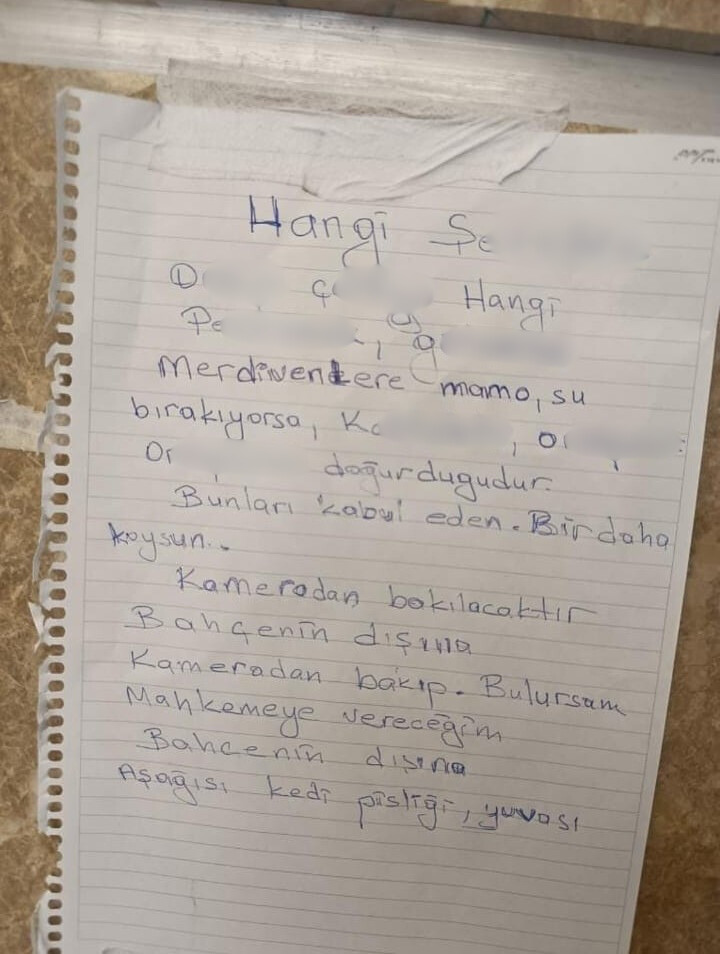 Hangi Şe
O ç Hangi
Pe , g
Merdivenlere mama, su
bırakıyorsa, Ka , o ,
Or doğurdugudur.
Bunları kabul eden. Bir daha
koysun..
Kameradan bakılacaktır
Bahçenin dışına
Kameradan bakıp. Bulursam
Mahkemeye vereceğim
Bahcenin dışına
Aşağısı kedi pisliği, yuvası